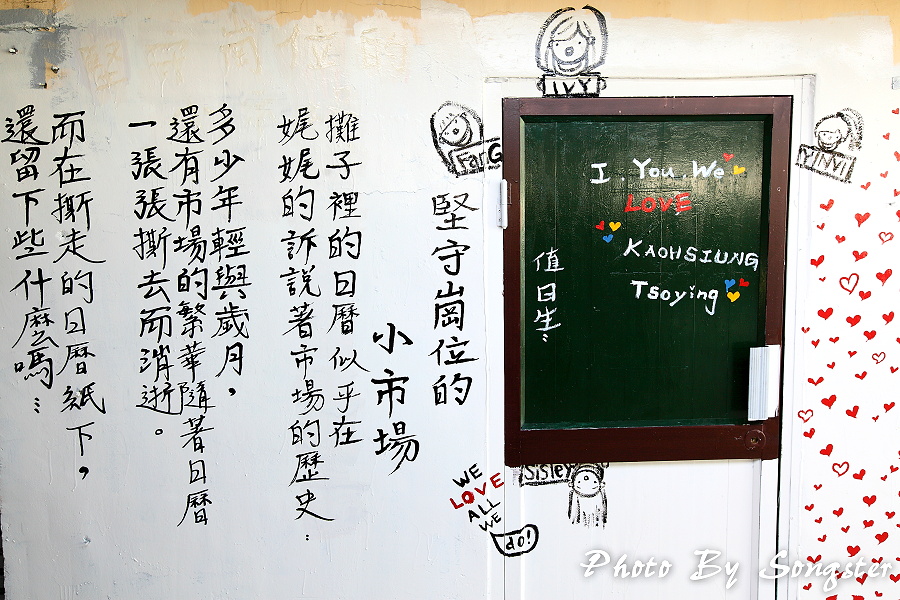 堅守崗位的
小市場
攤子裡的日曆似乎在
娓娓的訴說著市場的歷史…
多少年輕與歲月，
還有市場的繁華隨著日曆
一張張撕去而消逝。
而在撕走的日曆紙下，
還留下些什麼嗎…
IVY
FanG
YINVI
I, You, We
LOVE
KAOHSIUNG
Tsoying
值日生：
Sisley
WE
LOVE
ALL
WE
do!
Photo By Songster